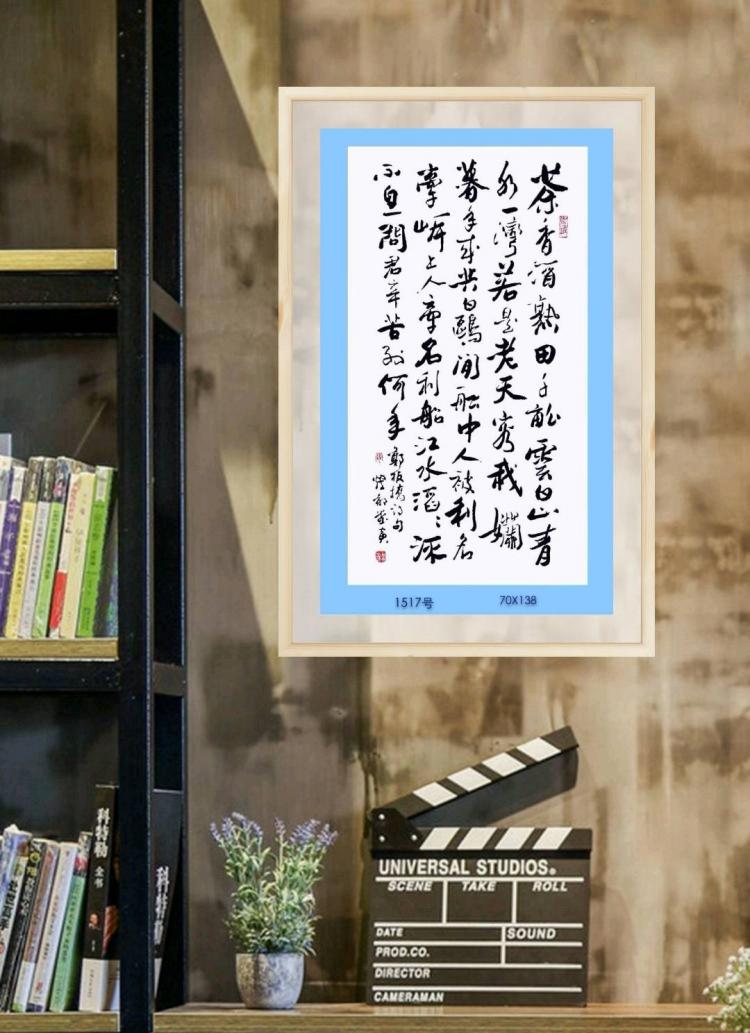 茶香酒熟田千畝雲白山青
水一灣若是老天容我嬾
暮年来共白鷗閒船中人被利名
牽岸上人牽名利船江水滔滔流
不息問君辛苦到何年
鄭板橋詩句
1517号 70X138
科特勒
全书
科特勒
UNIVERSAL STUDIOS®
SCENE TAKE ROLL
DATE SOUND
PROD.CO.
DIRECTOR
CAMERAMAN